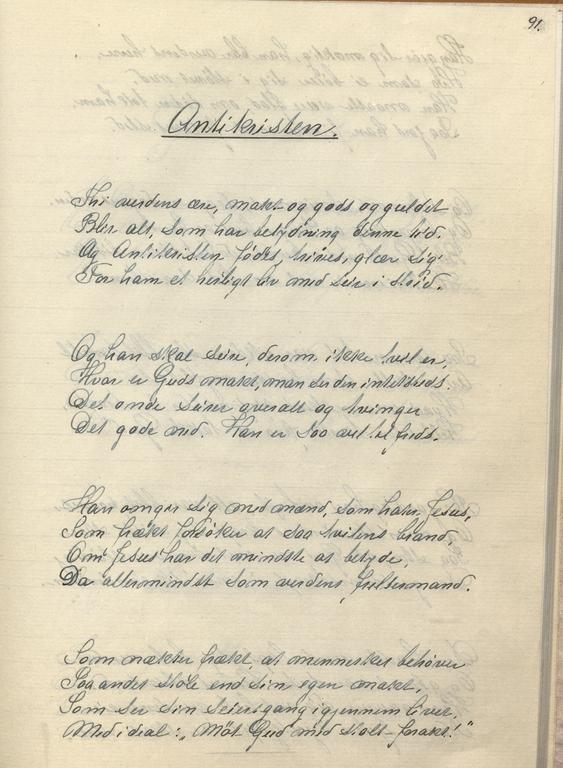 91.
Antikristen.
Thi verdens ære, makt og gods og guldet
Blir alt, som har betydning denne tid.
Og Antikristen fødes, trives, glær sig
For ham et herligt liv med seir i strid.
Og han skal seire, derom ikke tvil er,
Hvor er Guds makt, man ser den intetsteds.
Det onde seirer overalt og tvinger
Det gode ned. Han er saa vel tilfreds.
Han omgir sig med mænd, som hater Jesus,
Som frækt forsøker at saa tvilens brand,
Om Jesus har det mindste at betyde,
Da allermindst som verdens frelsermand.
Som nækter frækt, at mennesket behøver
Paa andet stole end sin egen makt,
Som ser sin seiersgang igjennem livet,
Med ideal: „Møt Gud med stolt foragt!"